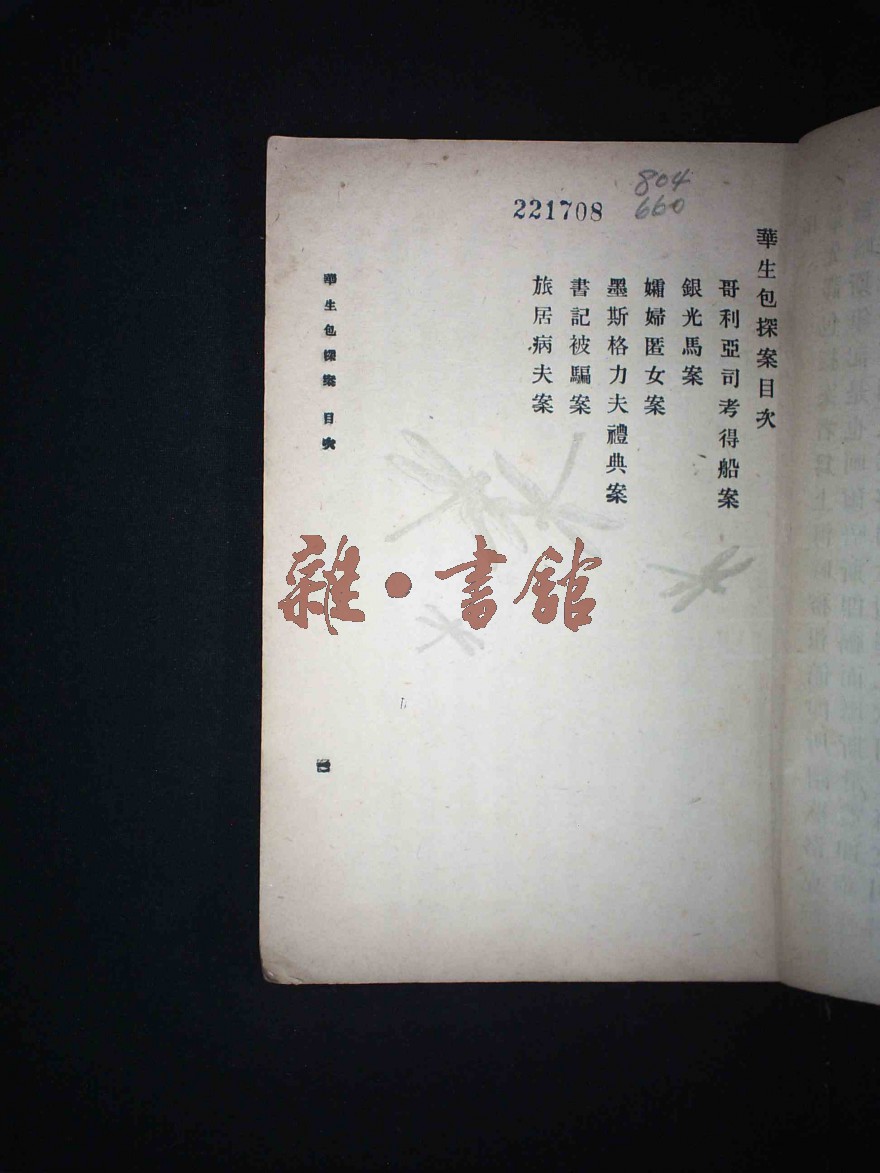 221708
804
660
華生包探案目次
哥利亞司考得船案
銀光馬案
孀婦匿女案
墨斯格力夫禮典案
書記被騙案
旅居病夫案
華生包探案 目次
雜·書館